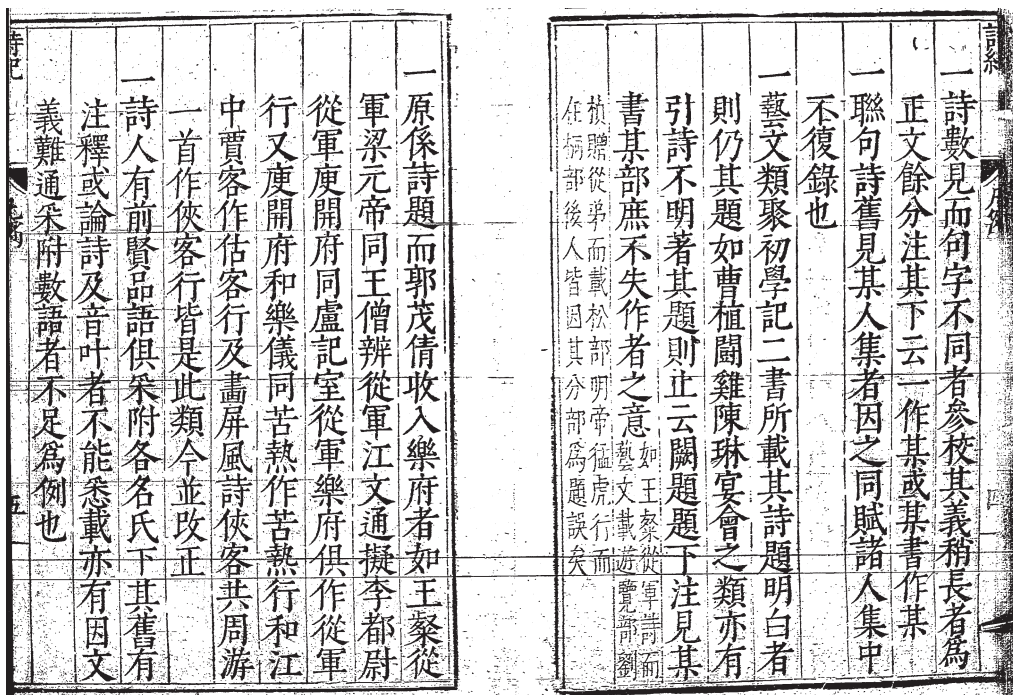 一詩數見而句字不同者參校其義稍長者爲
正文餘分注其下云一作某或某書作某
一聯句詩舊見某人集者因之同賦諸人集中
不復錄也
一藝文類聚初學記二書所載其詩題明白者
則仍其題如曹植鬬雞陳琳宴會之類亦有
引詩不明著其題則止云闕題題下注見某
書某部庶不失作者之意如王粲從軍詩而藝文載遊覽部劉
楨贈從弟而載松部明帝猛虎行而
在桐部後人皆因其分部爲題誤矣
四
一原係詩題而郭茂倩收入樂府者如王粲從
軍梁元帝同王僧辨從軍江文通擬李都尉
從軍庾開府同盧記室從軍樂府俱作從軍
行又庾開府和樂儀同苦熱作苦熱行和江
中賈客作估客行及畫屏風詩俠客共周游
一首作俠客行皆是此類今並改正
一詩人有前賢品語俱采附各名氏下其舊有
注釋或論詩及音叶者不能悉載亦有因文
義難通采附數語者不足爲例也
詩紀
五